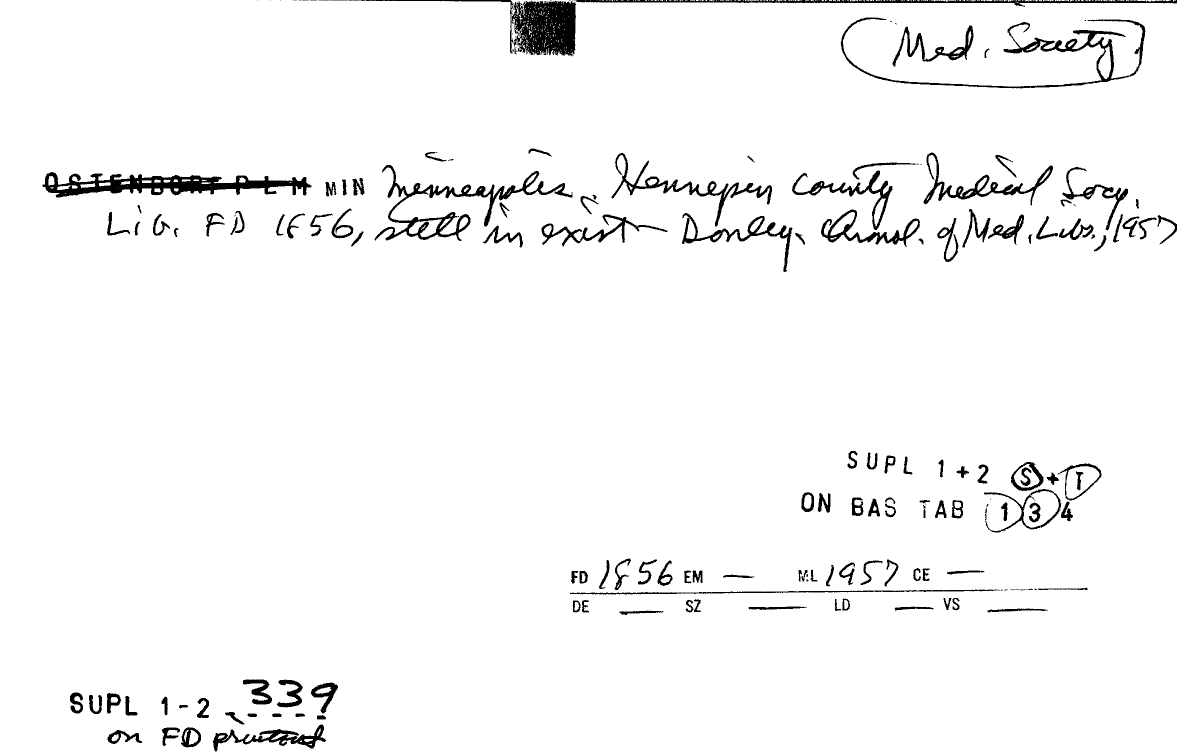 Med. Society
OSTENDORF P L M MIN Minneapolis, Hennepin County Medical Socy.
Lib. FD 1856, still in exist — Donley, Chronol. of Med. Libs., 1957
SUPL 1+2 S+T
ON BAS TAB 1 3 4
FD 1856 EM — ML 1957 CE —
DE ___ SZ ___ LD ___ VS ___
SUPL 1-2 339
on FD printout